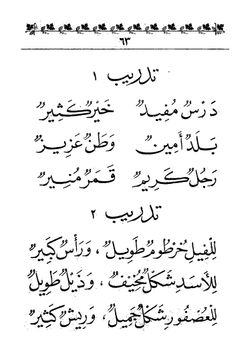 ٦٣
تدريب ١
دَرْسٌ مُفِيدٌ خَيْرٌ كَثِيْرٌ
بَلَدٌ أَمِينٌ وَطَنٌ عَزِيزٌ
رَجُلٌ كَرِيمٌ قَمَرٌ مُنِيرٌ
تدريب ٢
لِلْفِيلِ خُرْطُومٌ طَوِيلٌ ، وَرَأْسٌ كَبِيرٌ
لِلْأَسَدِ شَكْلٌ مُخِيْفٌ ، وَذَيْلٌ طَوِيلٌ
لِلْعُصْفُورِ شَكْلٌ جَمِيلٌ ، وَرِيشٌ كَثِيْرٌ